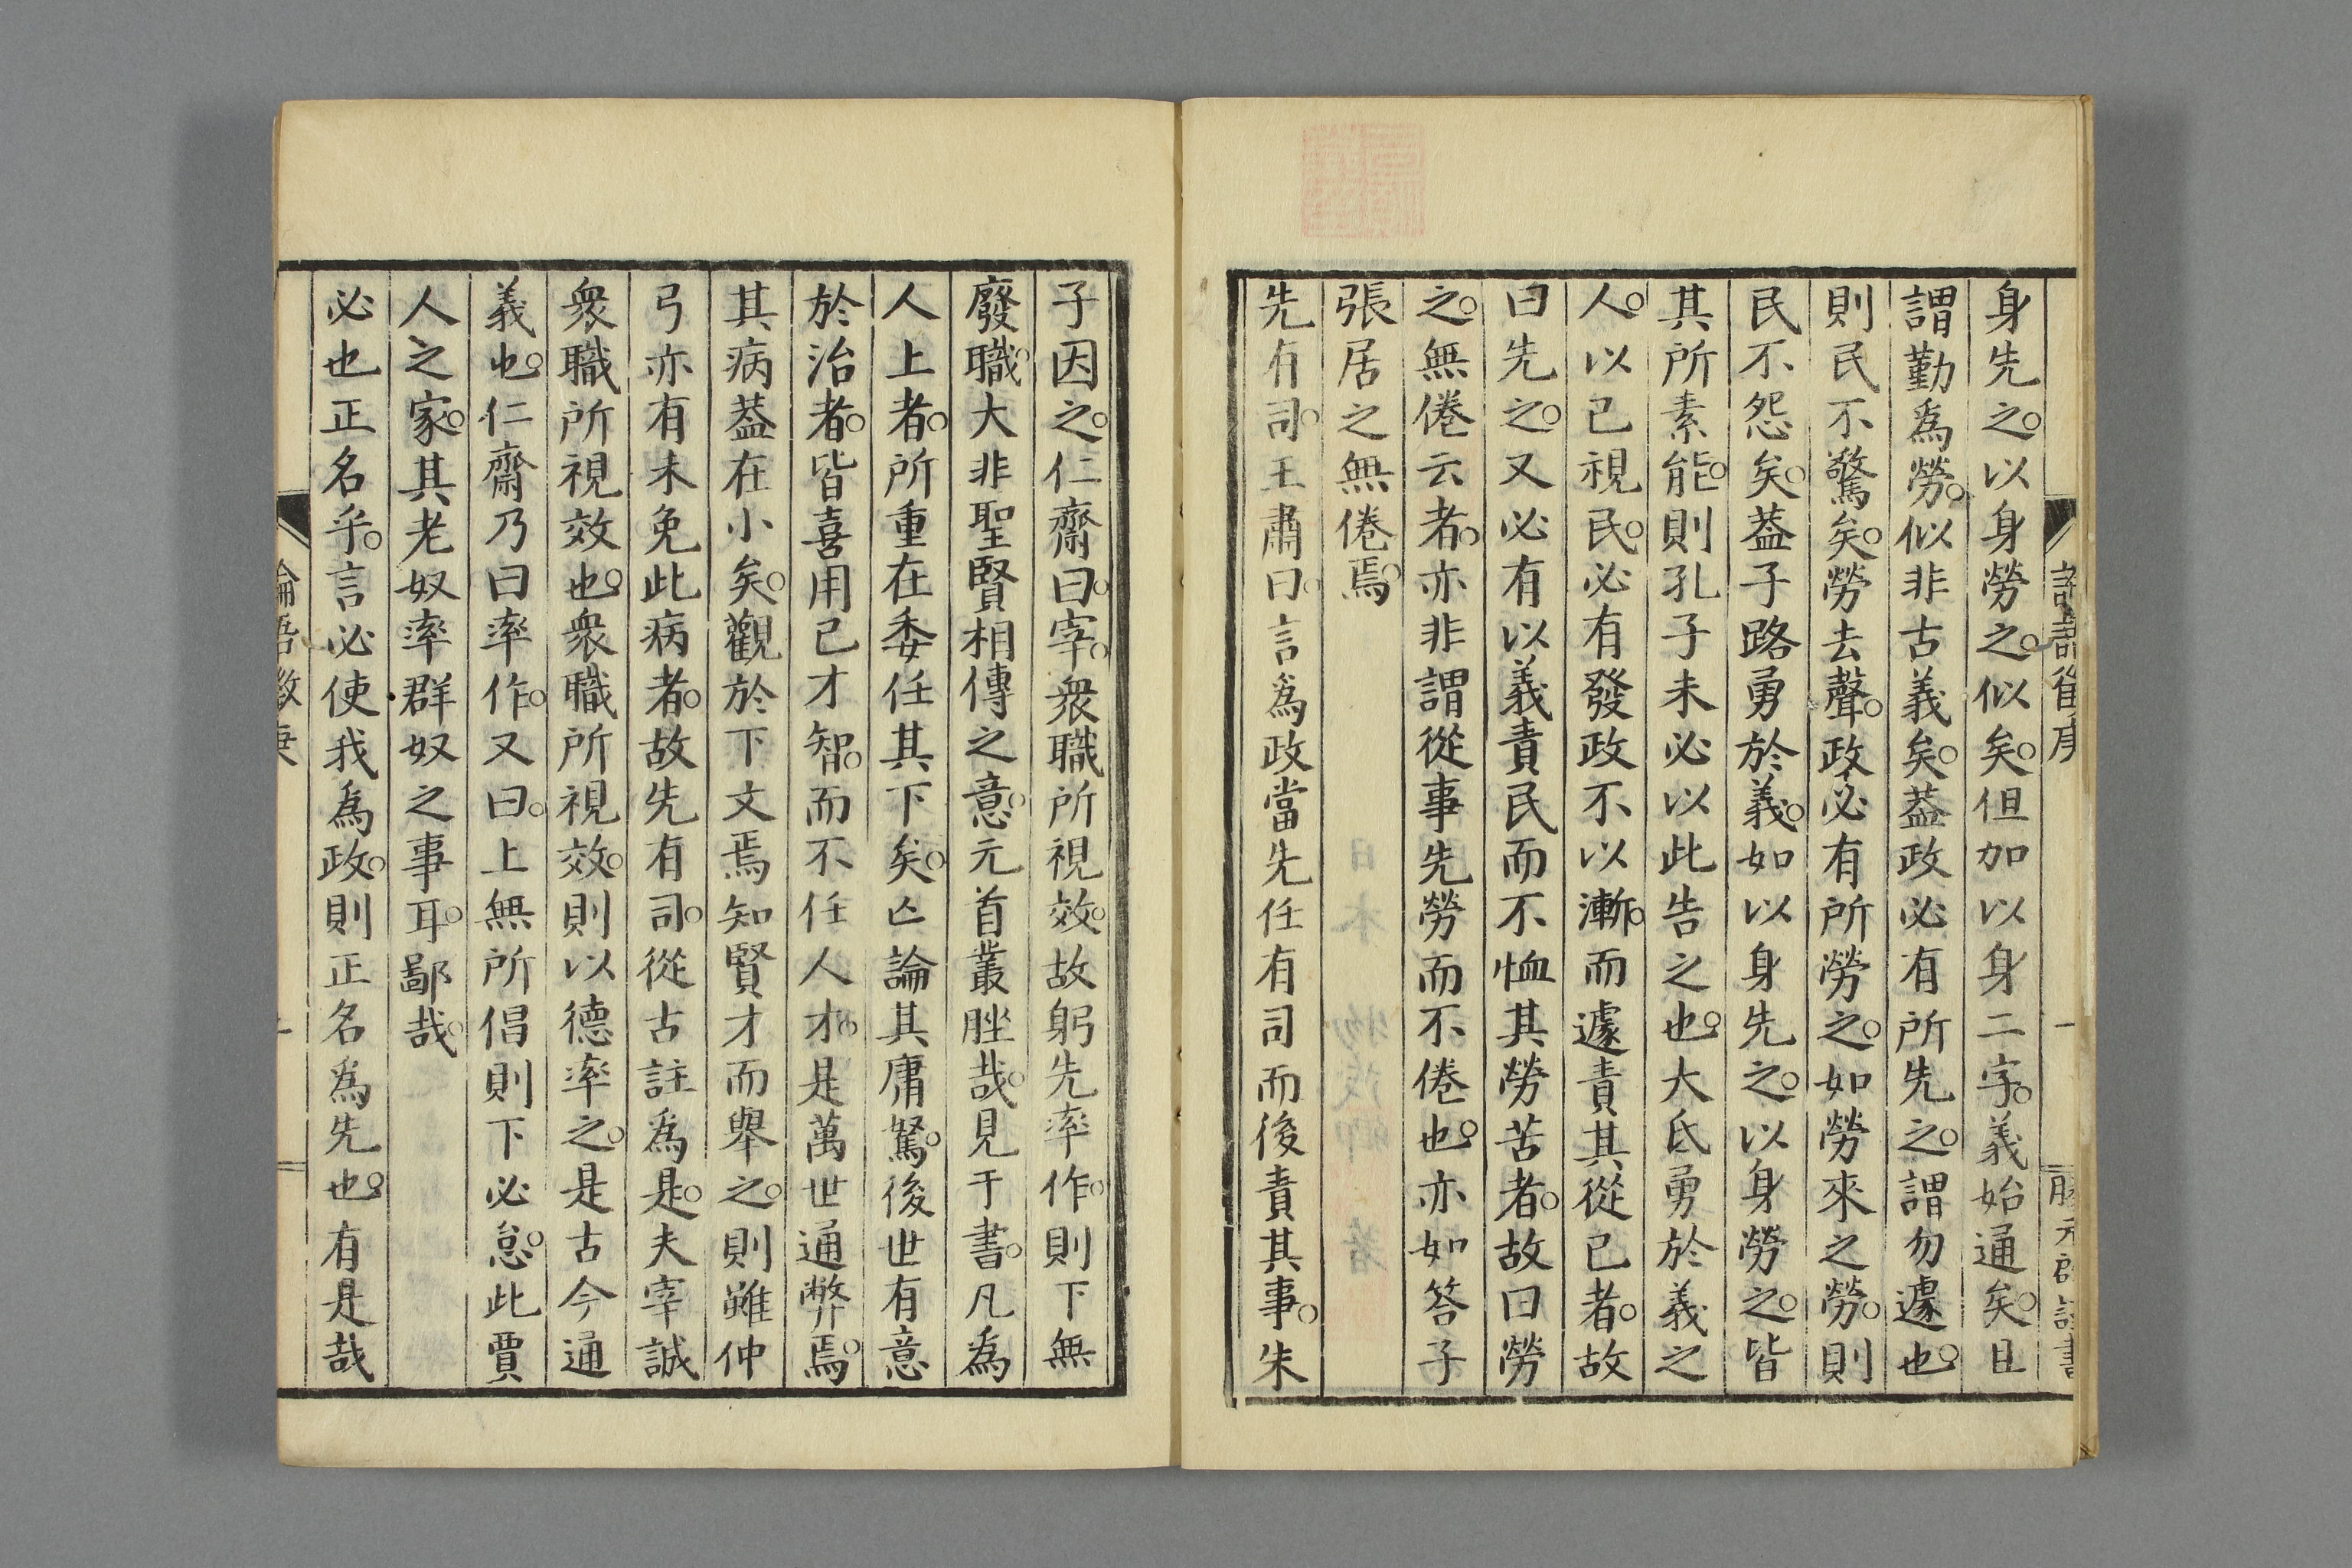 身先之。以身勞之。似矣。但加以身二字。義始通矣。且
謂勤爲勞。似非古義矣。葢政必有所先之。謂勿遽也。
則民不驚矣。勞去聲。政必有所勞之。如勞來之勞。則
民不怨矣。葢子路勇於義。如以身先之。以身勞之。皆
其所素能。則孔子未必以此告之也。大氐勇於義之
人。以己視民。必有發政不以漸。而遽責其從己者。故
曰先之。又必有以義責民而不恤其勞苦者。故曰勞
之。無倦云者。亦非謂從事先勞而不倦也。亦如答子
張居之無倦焉。
先有司。王肅曰。言爲政當先任有司而後責其事。朱
子因之。仁齋曰。宰。衆職所視效。故躬先率作。則下無
廢職。大非聖賢相傳之意。元首叢脞哉。見于書。凡爲
人上者。所重在委任其下矣。亡論其庸駑。後世有意
於治者。皆喜用己才智。而不任人才。是萬世通弊焉。
其病葢在小矣。觀於下文焉知賢才而舉之。則雖仲
弓亦有未免此病者。故先有司。從古註爲是。夫宰誠
衆職所視效也。衆職所視效。則以德率之。是古今通
義也。仁齋乃曰率作。又曰。上無所倡則下必怠。此賈
人之家。其老奴率群奴之事耳。鄙哉。
必也正名乎。言必使我爲政。則正名爲先也。有是哉